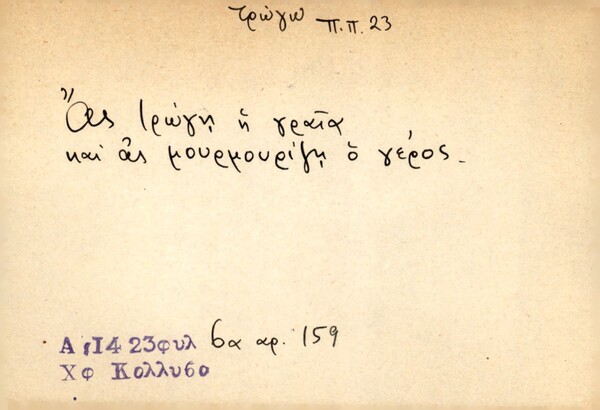 τρώγω π.π. 23
Ἄς τρώγῃ ἡ γραῖα
καὶ ἂς μουρμουρίζῃ ὁ γέρος.
Α,Ι4 23φυλ 6α αρ. 159
Χφ Κολλυβο